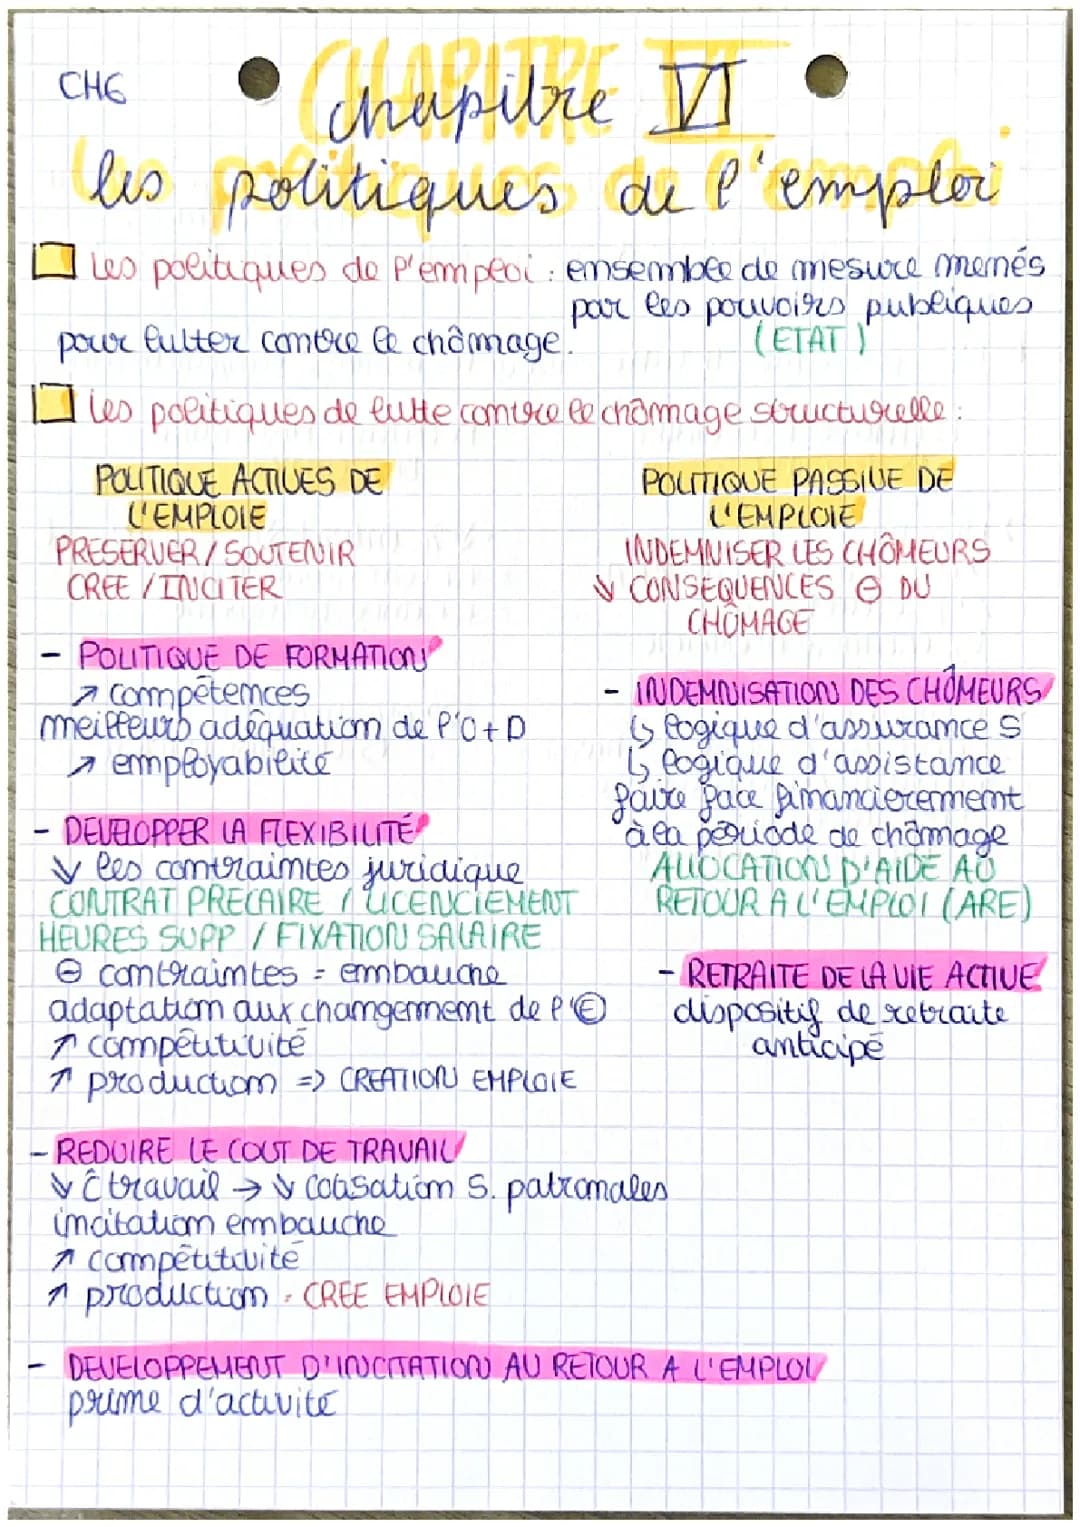 CH6
CHAPITRE VI
chapitre VI
les politiques de l'emploi
les politiques de l'emploi
Les politiques de l'emploi : ensemble de mesure menés
par les pouvoirs publiques
pour lutter contre le chômage.
(ETAT)
Les politiques de lutte contre le chômage structurelle :
POLITIQUE ACTIVES DE
L'EMPLOIE
PRESERVER / SOUTENIR
CREE / INCITER
- POLITIQUE DE FORMATION
↗ compétences
meilleurs adéquation de l'O+D
↗ employabilité
- DEVELOPPER LA FLEXIBILITÉ
↓ les contraintes juridique
CONTRAT PRECAIRE / LICENCIEMENT
HEURES SUPP / FIXATION SALAIRE
⊖ contraintes = embauche
adaptation aux changement de l'Ⓔ
↗ compétitivité
↗ production => CREATION EMPLOIE
- REDUIRE LE COUT DE TRAVAIL
↓ Ĉ travail → ↓ cotisation S. patronales
incitation embauche
↗ compétitivité
↗ production = CREE EMPLOIE
- DEVELOPPEMENT D'INCITATION AU RETOUR A L'EMPLOI
prime d'activité
POLITIQUE PASSIVE DE
L'EMPLOIE
INDEMNISER LES CHÔMEURS
↓ CONSEQUENCES ⊖ DU
CHÔMAGE
- INDEMNISATION DES CHÔMEURS
↳ logique d'assurance S
↳ logique d'assistance
faire face financierement
à la période de chômage
ALLOCATION D'AIDE AU
RETOUR A L'EMPLOI (ARE)
- RETRAITE DE LA VIE ACTIVE
dispositif de retraite
anticipé